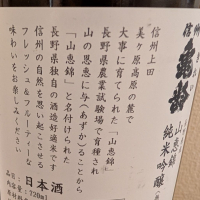 信州
亀齢
山恵錦
純米吟醸
信州上田
美ヶ原高原の麓で
大事に育てられた「山恵錦」
長野県農業試験場で育種され
山の恩恵に与(あずか)ることから
「山恵錦」と名付けられた
長野県独自の酒造好適米です
信州の自然を思い起こさせる
フレッシュ&フルーティーな
味わいをお楽しみください
日本酒
720ml